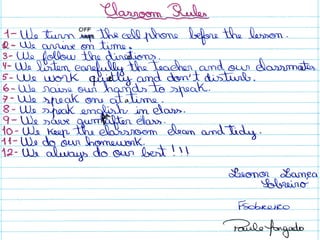 Classroom Rules
1- We turn OFF the cell phone before the lesson.
2- We arrive on time.
3- We follow the directions.
4- We listen carefully the teacher and our classmates
5- We work quietly and don't disturb.
6- We raise our hands to speak.
7- We speak one at a time.
8- We speak english in class.
9- We save gum after class.
10- We keep the classroom clean and tidy.
11- We do our homework.
12- We always do our best!!!
Leonor Lança
Sobreiro